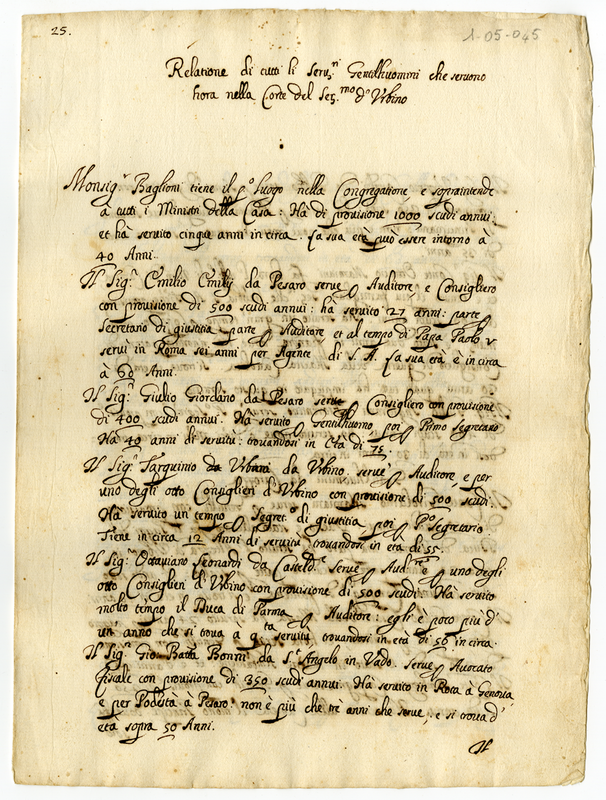 25.
1-05-045
Relatione di tutti li Serv.ri Gentilhuomini che servono
hora nella Corte del Ser.mo d'Urbino
Monsig.r Baglioni tiene il p.o luogo nella Congregatione e sopraintende
a tutti i Ministri della Casa: Ha di provisione 1000 scudi annui
et hà servito cinque anni in circa. La sua età può essere intorno à
40 Anni.
Il Sig.r Emilio Emilij da Pesaro serve Auditore, e Consigliero
con provisione di 500 scudi annui: hà servito 27 anni: parte
Secretario di giustitia parte Auditore et al tempo di Papa Paolo V
servì in Roma sei anni per Agente di S. A. La sua età è in circa
à 60 Anni.
Il Sig.r Giulio Giordano da Pesaro serve Consigliero con provisione
di 400 scudi annui. Ha servito Gentilhuomo, poi Primo Segretario
Ha 40 anni di servitù: trovandosi in Età di 75.
Il Sig.r Tarquinio da Urbino. serve Auditore, e per
uno degli otto Consiglieri d'Urbino con provisione di 500 scudi.
Ha servito un tempo Segret.o di giustitia poi P.o Segretario.
Tiene in circa 12 Anni di servitù trovandosi in età di 55.
Il Sig.r Ottaviano Leonardi da Casteld.te serve Aud.re e uno degli
otto Consiglieri d'Urbino con provisione di 500 scudi. Hà servito
molto tempo il Duca di Parma Auditore: egli è poco più d'
un' anno che si trova à q.ta servitù trovandosi in età di 56 in circa.
Il Sig.r Gio: Batta Bonini da S.t Angelo in Vado. serve Avocato
fiscale con provisione di 350 scudi annui. Hà servito in Rota à Genova,
e per Podestà à Pesaro: non è più che trè anni che serve, e si trova d'
età sopra 50 Anni.
Il